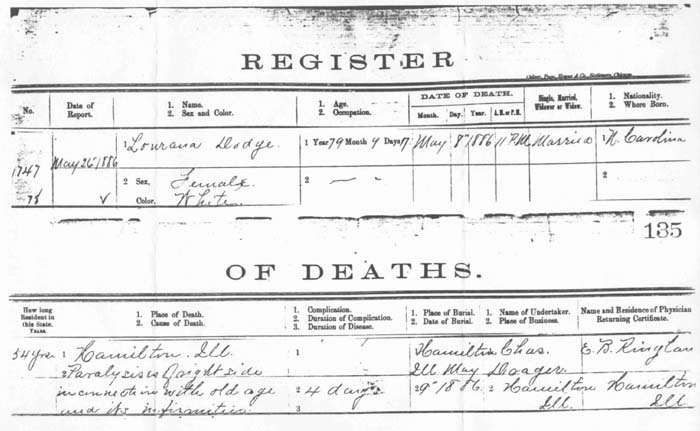 REGISTER
Culver, Page, Hoyne & Co., Stationers, Chicago.
No. Date of Report. 1. Name. 2. Sex and Color. 1. Age. 2. Occupation. DATE OF DEATH. Month. Day. Year. A.M. or P.M. Single, Married, Widower or Widow. 1. Nationality. 2. Where Born.
1747 May 26" 1886 1 Lourana Dodge. 1 Year 79 Month 4 Days 17 May 8" 1886 11 P.M. Married 1 N. Carolina
78 2 Sex, Female. 2 — 2
Color, White
135
OF DEATHS.
How long Resident in this State. Years. 1. Place of Death. 2. Cause of Death. 1. Complication. 2. Duration of Complication. 3. Duration of Disease. 1. Place of Burial. 2. Date of Burial. 1. Name of Undertaker. 2. Place of Business. Name and Residence of Physician Returning Certificate.
54 yrs 1 Hamilton. Ill. 1 Hamilton Chas. E. B. Ringlan
2 Paralysis of right side Ill May Dodger.
in connection with old age 2 4 days 29" 1886. 2 Hamilton Hamilton
and its infirmities 3 Ill. Ill